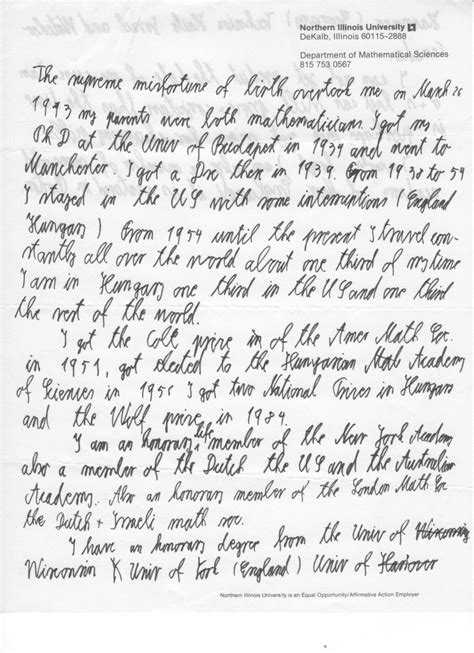 Northern Illinois University
DeKalb, Illinois 60115–2888
Department of Mathematical Sciences
815 753 0567
The supreme misfortune of birth overtook me on March 26
1913 my parents were both mathematicians. I got my
Ph D at the Univ of Budapest in 1934 and went to
Manchester. I got a Dsc there in 1939. From 1938 to 54
I stayed in the US with some interruptions (England
Hungary) From 1954 until the present I travel con-
stantly all over the world about one third of my time
I am in Hungary one third in the US and one third
the rest of the world.
I got the Cole prize in of the Amer Math Soc.
in 1951, got elected to the Hungarian Academy
of Sciences in 1956 I got two National Prizes in Hungary
and the Wolf prize in 1984.
I am an honorary life member of the New York Academy
also a member of the Dutch the US and the Australian
Academy. Also an honorary member of the London Math Soc
the Dutch + Israeli math soc.
I have an honorary degree from the Univ of
Wisconsin Univ of York (England) Univ of Hanover
Northern Illinois University is an Equal Opportunity/Affirmative Action Employer